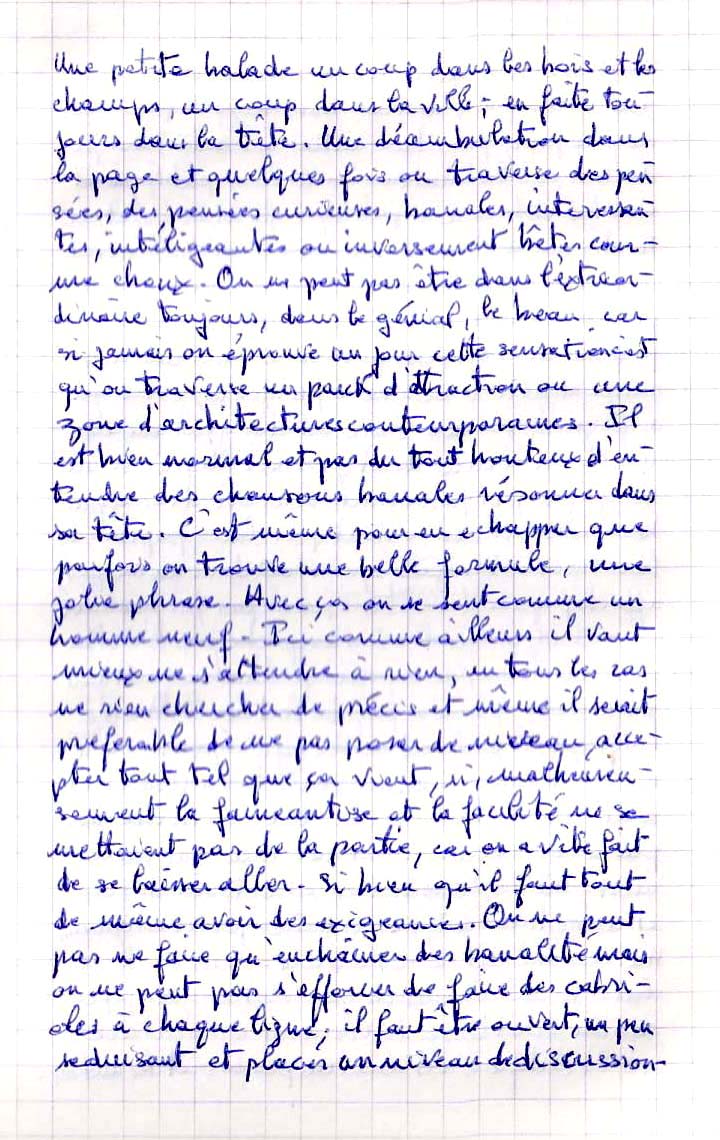 Une petite balade un coup dans les bois et les
champs, un coup dans la ville ; en faite tou-
jours dans la tête. Une déambulation dans
la page et quelques fois on traverse des pen
sées, des pensées curieuses, banales, interessan
tes, intéligeantes ou inversement bêtes com-
me choux. On ne peut pas être dans l'extraor-
dinaire toujours, dans le génial, le beau car
si jamais on éprouve un jour cette sensation c'est
qu'on traverse un parck d'attraction ou une
zone d'architectures contemporaines. Il
est bien normal et pas du tout honteux d'en-
tendre des chansons banales résonner dans
sa tête. C'est même pour en echapper que
parfois on trouve une belle formule, une
jolie phrase. Avec ça on se sent comme un
homme neuf. Ici comme ailleurs il vaut
mieux ne s'attendre à rien, en tous les cas
ne rien chercher de précis et même il serait
preferable de ne pas poser de niveau, acce-
pter tout tel que ça vient, si, malheureu-
sement la faineantise et la facilité ne se
mettaient pas de la partie, car on a vite fait
de se laisser aller. Si bien qu'il faut tout
de même avoir des exigeances. On ne peut
pas ne faire qu'enchaîner des banalité mais
on ne peut pas s'efforcer de faire des cabri-
oles à chaque ligne ; il faut être ouvert, un peu
seduisant et placer un niveau de discussion